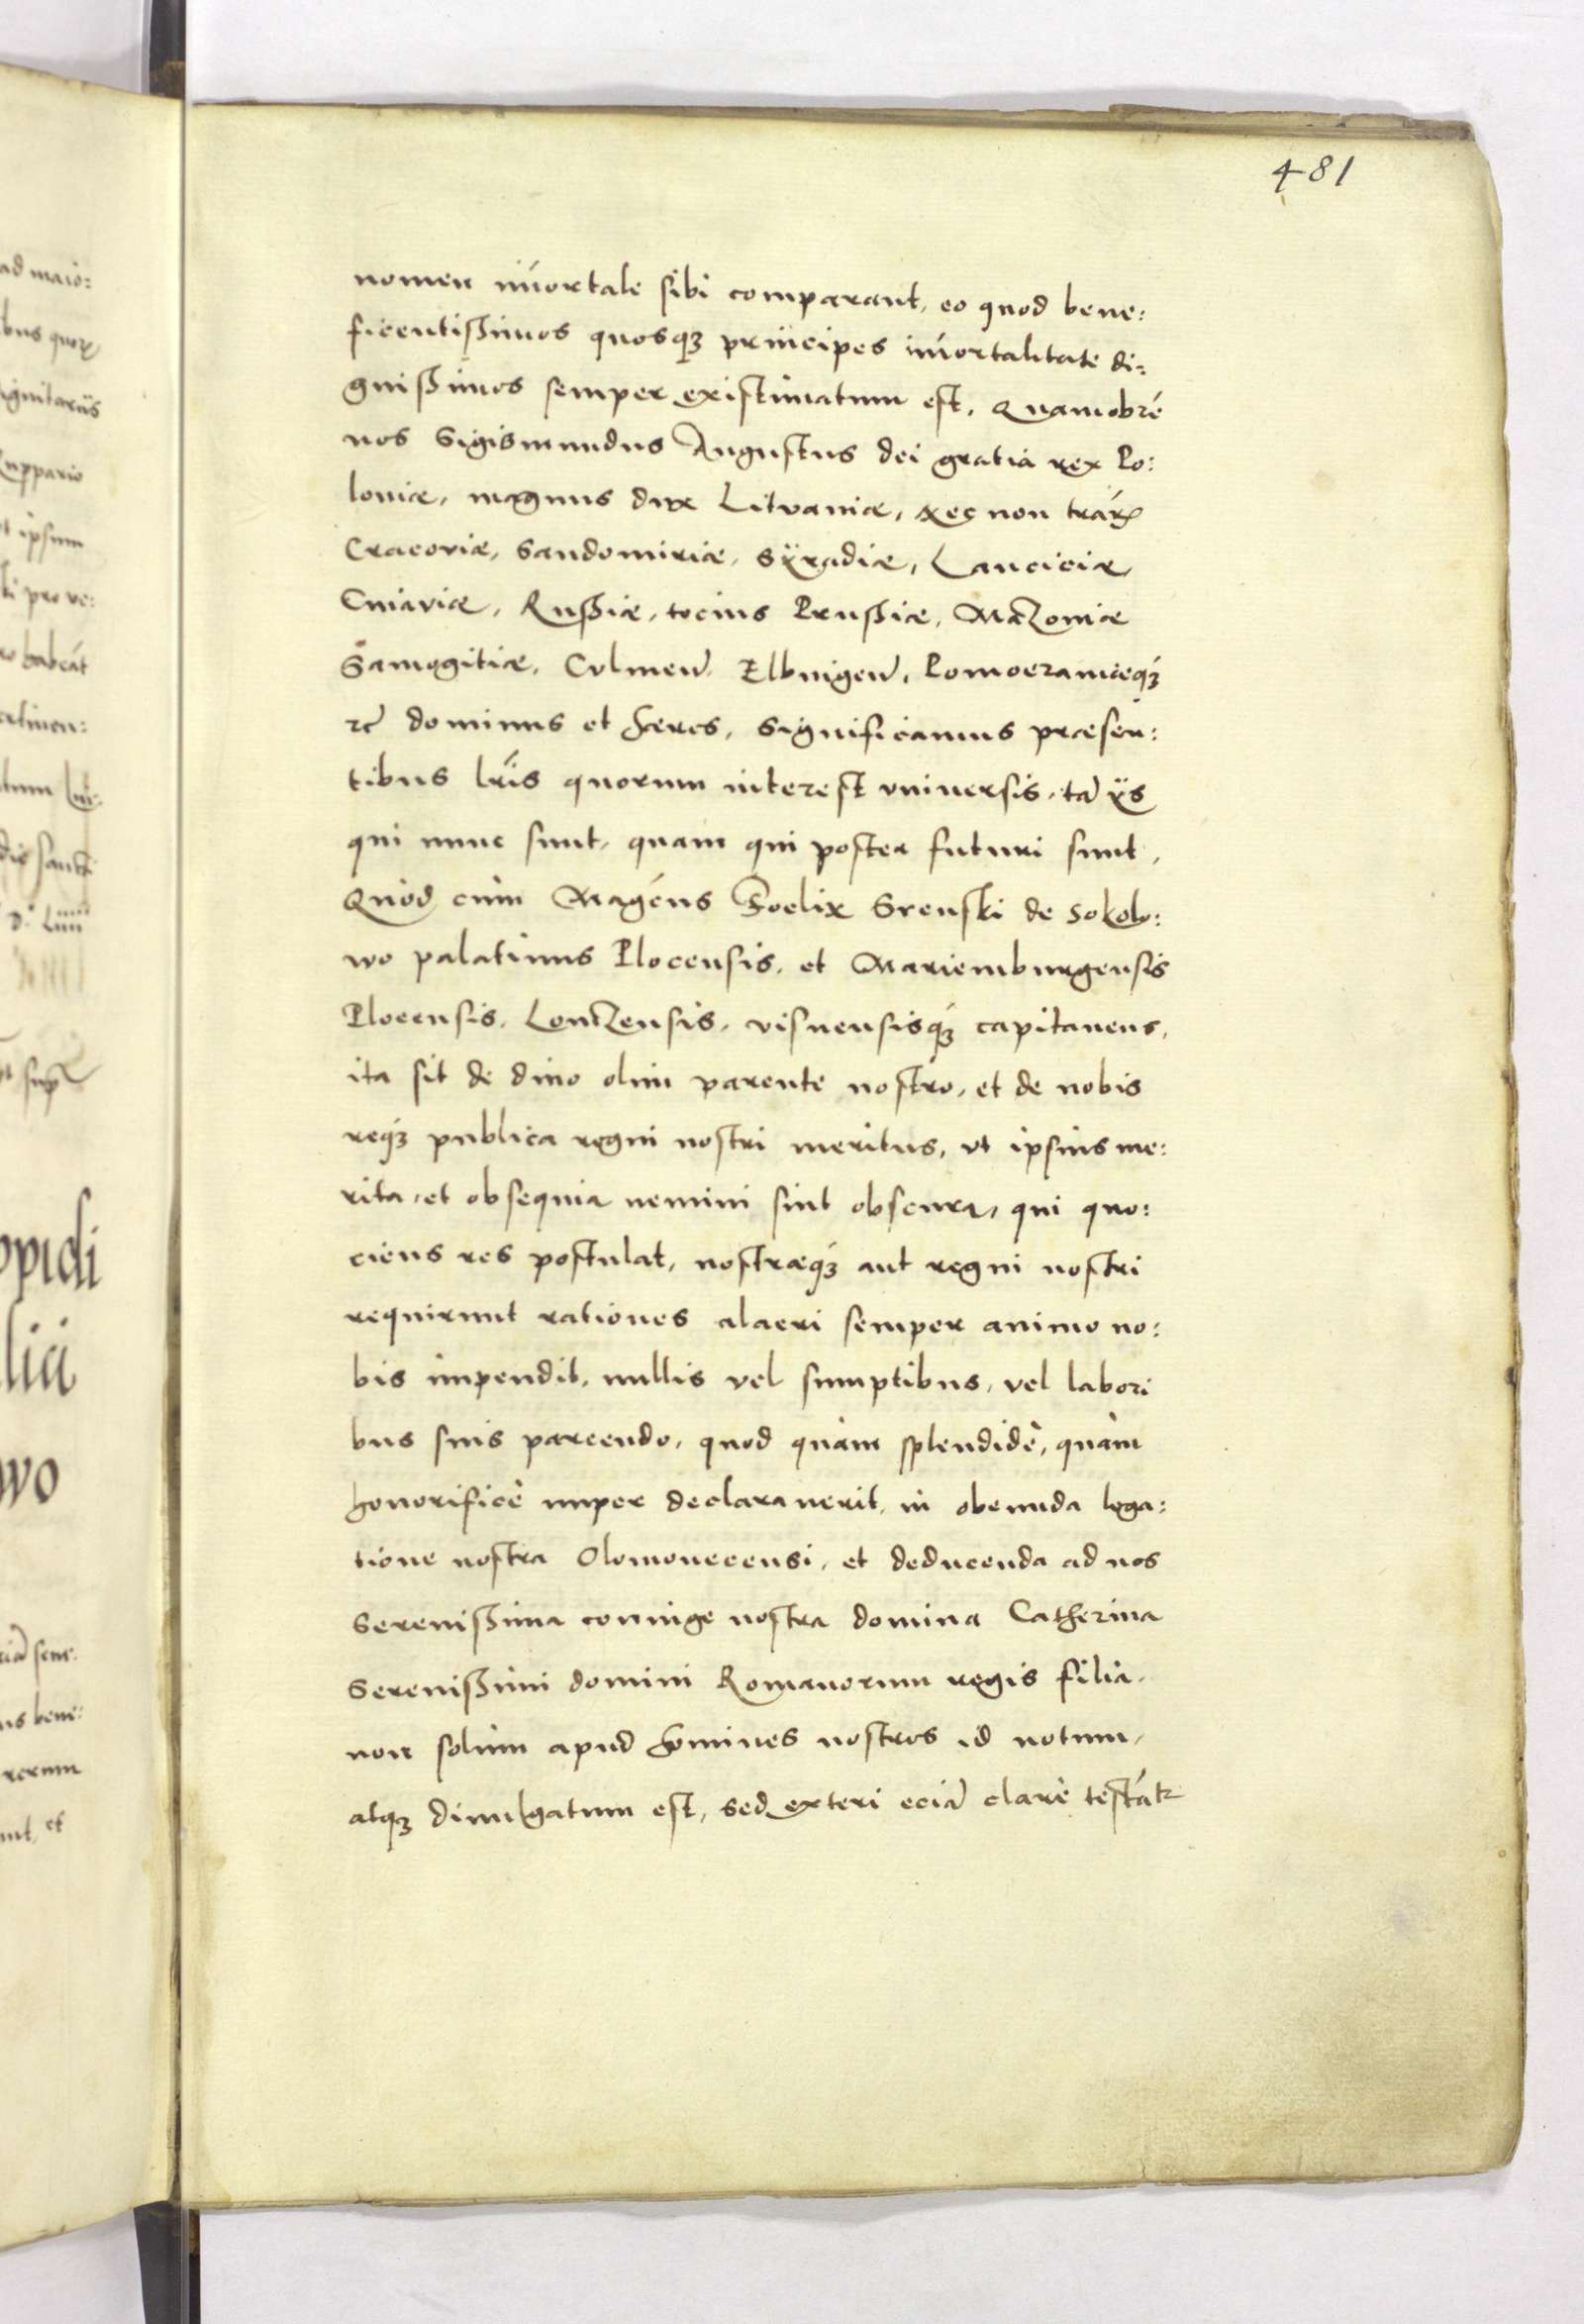 481
nomen im̄ortale sibi comparant, eo quod bene:
ficentißimos quosqꝫ principes im̄ortalitate di:
gnißimos semper existimatum est, Quamobrē
nos Sigismundus Augustus dei gratia rex Po:
loniæ, magnus dux Litvaniæ, nec non trāꝝ
Cracoviæ, Sandomiriæ, Syradiæ, Lanciciæ
Cuiaviæ, Rußiæ, tocius Prußiæ, Mazoviæ
Samogitiæ, Culmeñ, Elbingeñ, Pomoeraniæqꝫ
rc̄ dominus et hæres, Significamus præsen:
tibus lr̄is quorum interest universis, tā ijs
qui nunc sunt, quam qui postea futuri sunt,
Quod cùm Magc̄us Foelix Srenski de Sokolo:
wo palatinus Plocensis, et Mariemburgensis
Plocensis, Lomzensis, visnensisqꝫ capitaneus,
ita sit de divo olim parente nostro, et de nobis
reqꝫ publica regni nostri meritus, vt ipsius me:
rita, et obsequia nemini sint obscura, qui quo:
ciens res postulat, nostræqꝫ aut regni nostri
requirunt rationes alacri semper animo no:
bis impendit, nullis vel sumptibus, vel labori
bus suis parcendo, quod quàm splendidè, quàm
honorificè nuper declaraverit, in obeunda lega:
tione nostra Olomoucensi, et deducenda ad nos
Serenißima coniuge nostra domina Catherina
Serenißimi domini Romanorum regis filia,
non solùm apud homines nostros id notum,
atqꝫ divulgatum est, sed exteri eciā clarè testāt᷑